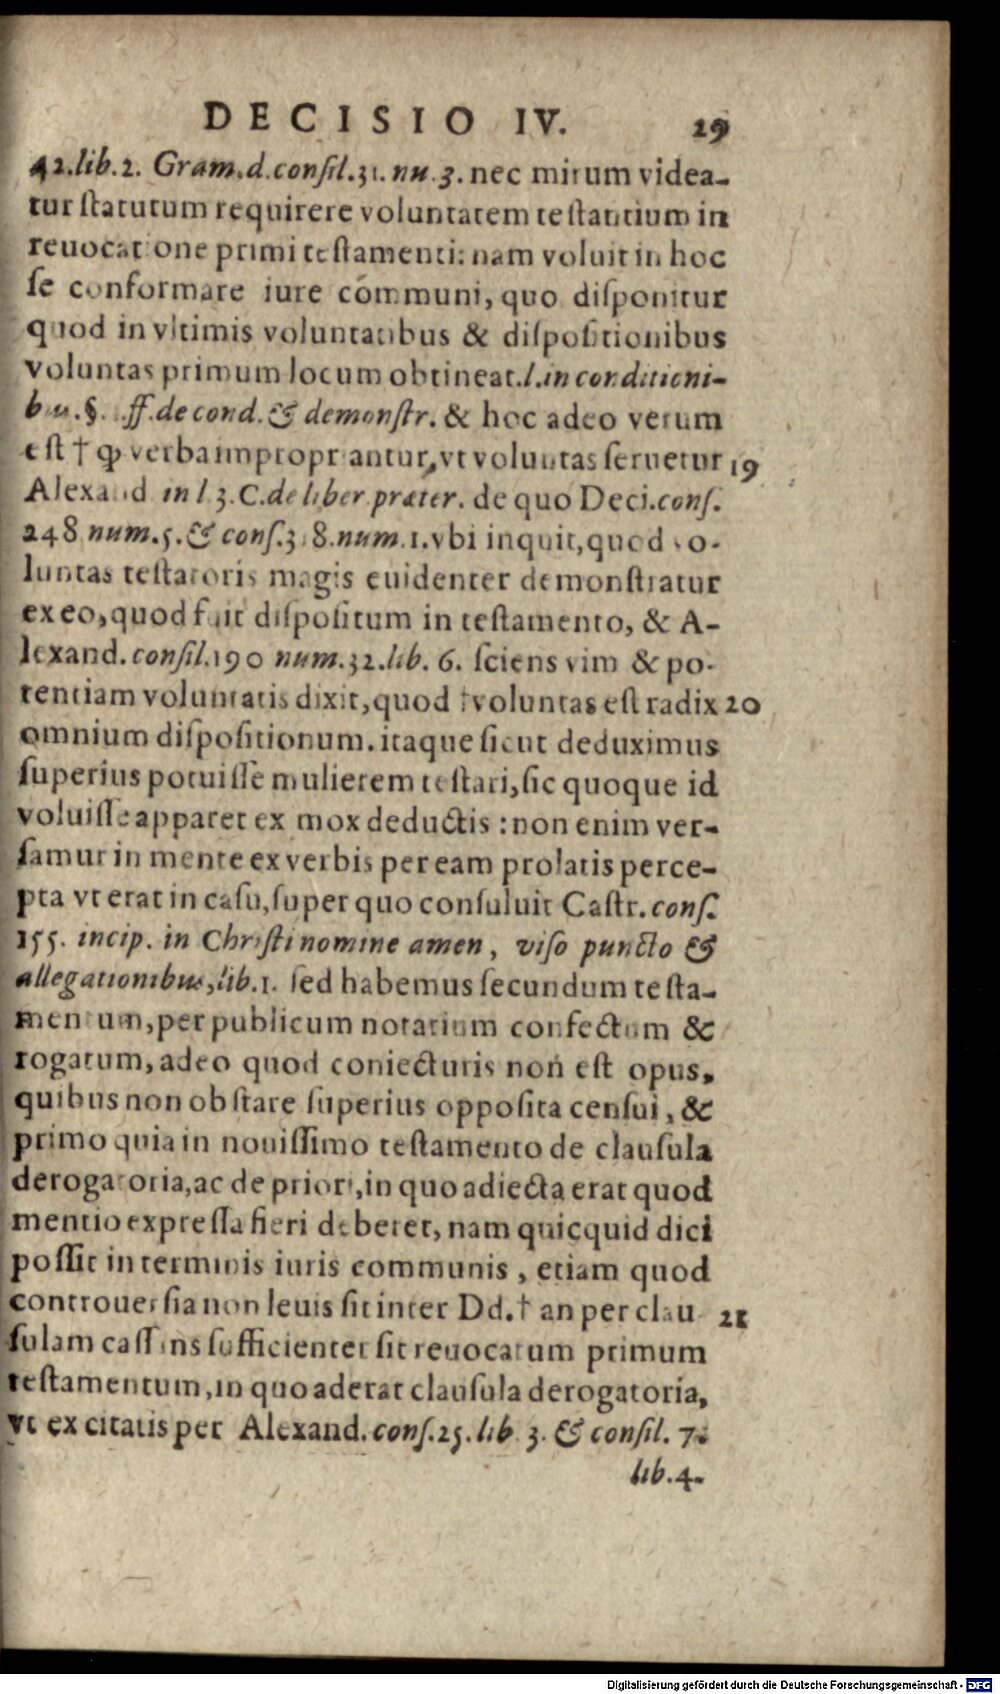 DECISIO IV. 29
42.lib.2. Gram.d.consil.31.nu.3. nec mirum videa-
tur statutum requirere voluntatem testantium in
reuocatione primi testamenti: nam voluit in hoc
se conformare iure cómmuni, quo disponitur
quod in vltimis voluntatibus & dispositionibus
voluntas primum locum obtineat.l.in conditioni-
bus.§. ff.de cond. & demonstr. & hoc adeo verum
est † ꝙ verba impropriantur, vt voluntas seruetur 19
Alexand in l 3.C.de liber.præter. de quo Deci.cons.
248 num.5.& cons.318.num.1.vbi inquit,quod vo-
luntas testatoris magis euidenter demonstratur
ex eo,quod fuit dispositum in testamento, & A-
lexand.consil.190 num.32.lib. 6. sciens vim & po-
tentiam voluntatis dixit,quod †voluntas est radix 20
omnium dispositionum.itaque sicut deduximus
superius potuisse mulierem testari,sic quoque id
voluisse apparet ex mox deductis : non enim ver-
samur in mente ex verbis per eam prolatis perce-
pta vt erat in casu,super quo consuluit Castr.cons.
155. incip. in Christi nomine amen, viso puncto &
allegationibus,lib.1. sed habemus secundum testa-
mentum,per publicum notarium confectum &
rogatum,adeo quod coniecturis non est opus,
quibus non obstare superius opposita censui, &
primo quia in nouissimo testamento de clausula
derogatoria,ac de priori,in quo adiecta erat quod
mentio expressa fieri deberet, nam quicquid dici
possit in terminis iuris communis, etiam quod
controuersia non leuis sit inter Dd.† an per clau 21
sulam cassans sufficienter sit reuocatum primum
testamentum,in quo aderat clausula derogatoria,
vt ex citatis per Alexand.cons.25.lib 3. & consil. 7.
lib.4.
Digitalisierung gefördert durch die Deutsche Forschungsgemeinschaft - DFG